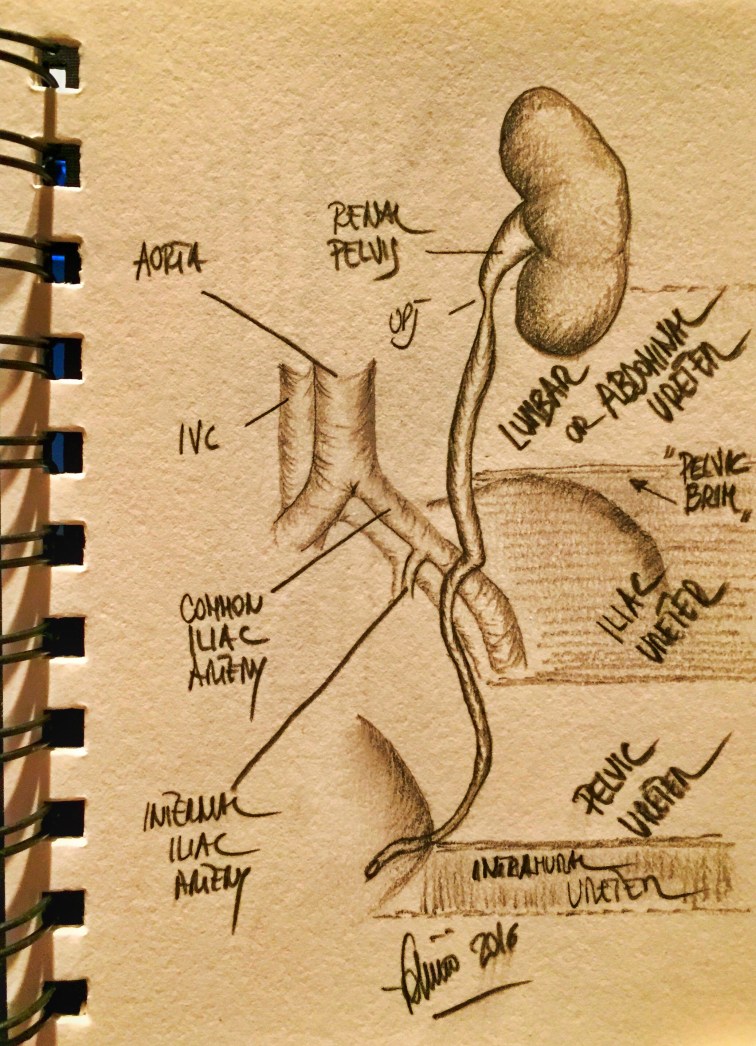 RENAL
PELVIS
AORTA
UPJ
IVC
LUMBAR
OR ABDOMINAL
URETER
"PELVIC
BRIM"
COMMON
ILIAC
ARTERY
ILIAC
URETER
INTERNAL
ILIAC
ARTERY
PELVIC
URETER
INTRAMURAL
URETER
2016